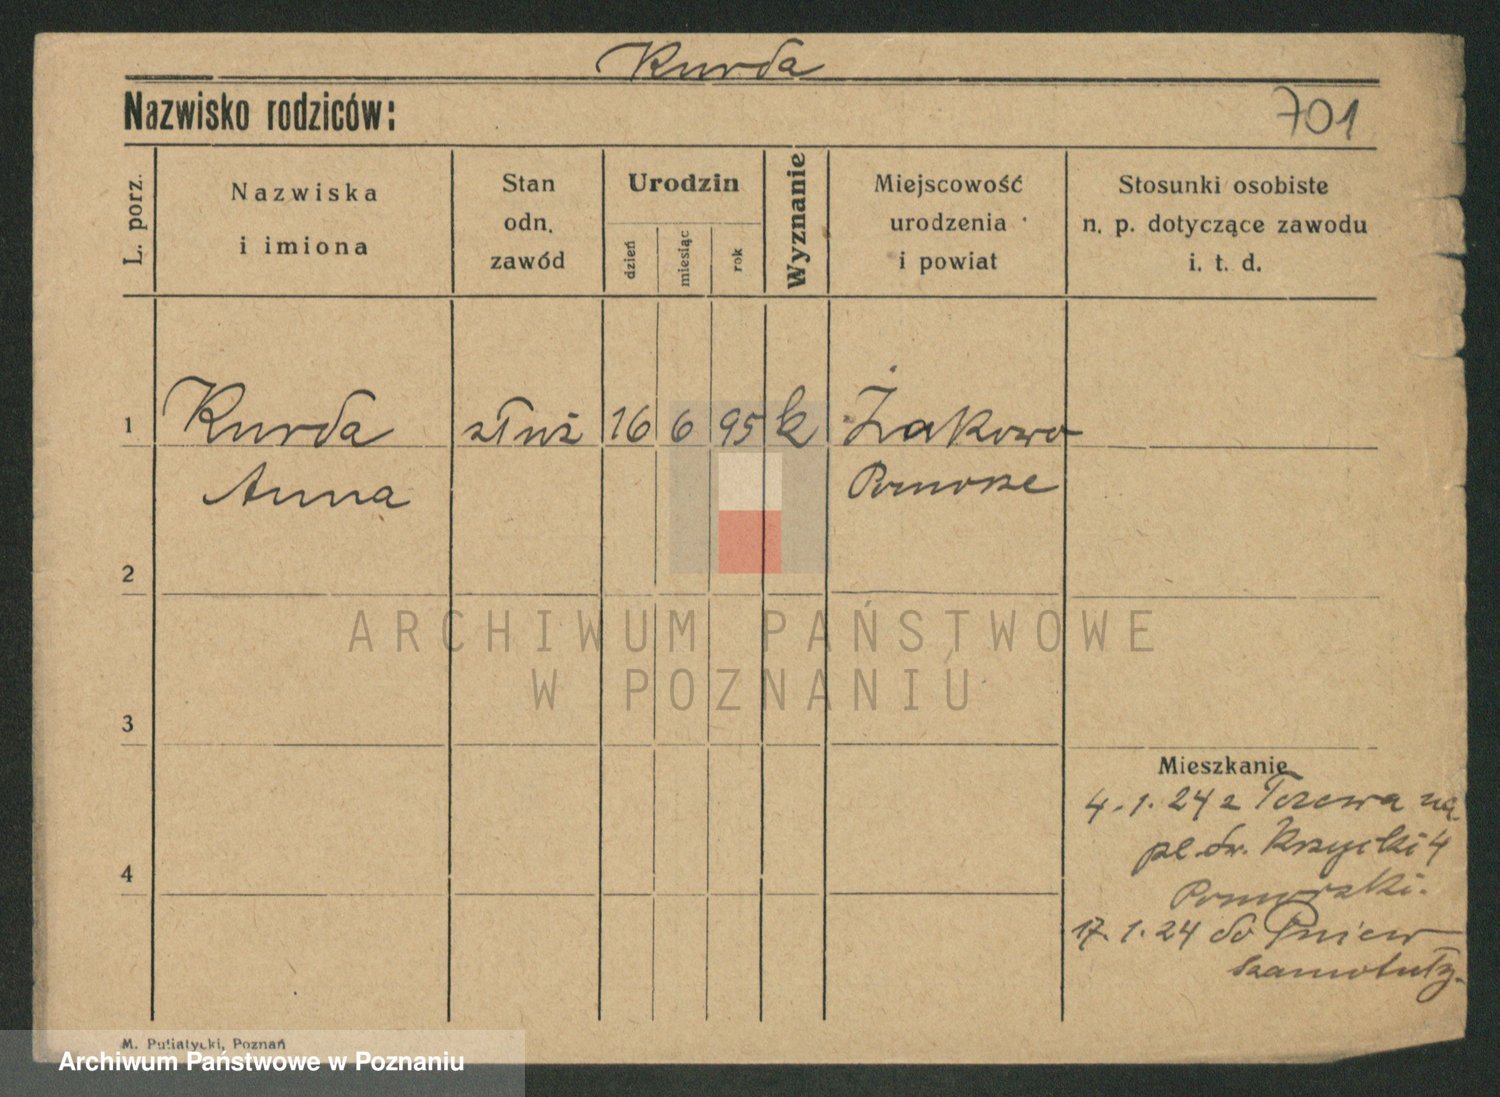 Kurda
Nazwisko rodziców:
701
L. porz.
Nazwiska
i imiona
Stan
odn.
zawód
Urodzin
dzień
miesiąc
rok
Wyznanie
Miejscowość
urodzenia
i powiat
Stosunki osobiste
n. p. dotyczące zawodu
i. t. d.
1
Kurda
służ
16
6
95
k
Żakowo
Anna
Pomorze
2
3
4
Mieszkanie
4.1.24 z Tczewa na
pl. św. Krzyski 4
Pomorski.
17.1.24 do Pniew
Szamotuły.
M. Putiatycki, Poznań
ARCHIWUM PAŃSTWOWE
W POZNANIU
Archiwum Państwowe w Poznaniu